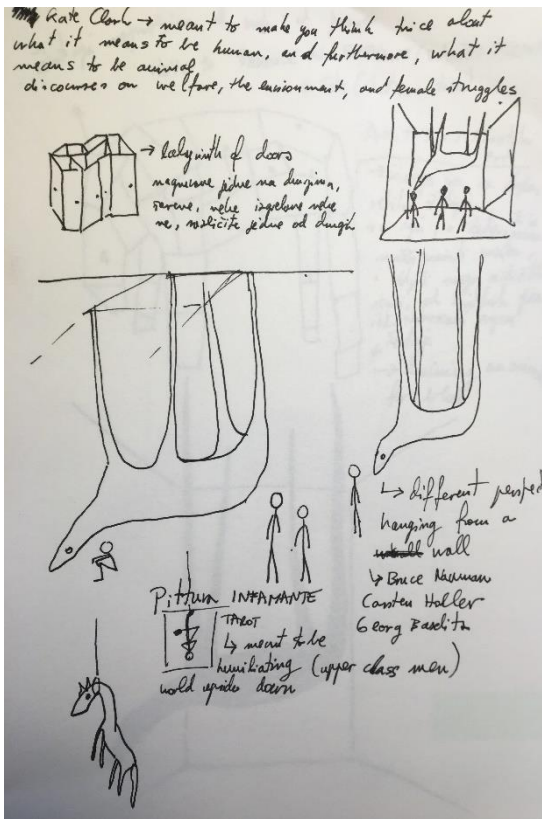 Kate Clark → meant to make you think twice about
what it means to be human, and furthermore, what it
means to be animal
discourses on welfare, the environment, and female struggles
→ labyrinth of doors
jedne na drugima,
neke neke
ne, različite jedne od drugih
↳ different
hanging from a
wall
↳ Bruce Nauman
Carsten Holler
Georg Baselitz
Pittura INFAMANTE
TAROT
↳ meant to be
humiliating (upper class men)
world upside down